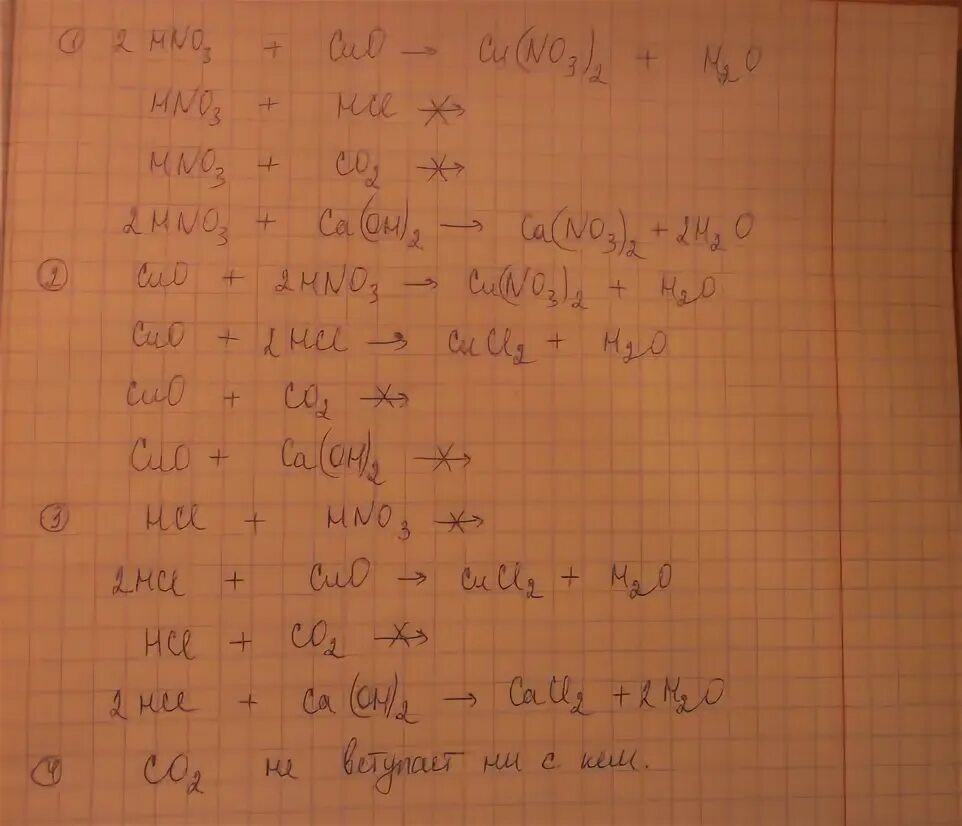 ① 2HNO₃ + CuO → Cu(NO₃)₂ + H₂O
HNO₃ + HCl ↛
HNO₃ + CO₂ ↛
2HNO₃ + Ca(OH)₂ → Ca(NO₃)₂ + 2H₂O
② CuO + 2HNO₃ → Cu(NO₃)₂ + H₂O
CuO + 2HCl → CuCl₂ + H₂O
CuO + CO₂ ↛
CuO + Ca(OH)₂ ↛
③ HCl + HNO₃ ↛
2HCl + CuO → CuCl₂ + H₂O
HCl + CO₂ ↛
2HCl + Ca(OH)₂ → CaCl₂ + 2H₂O
④ CO₂ не вступает ни с кем.